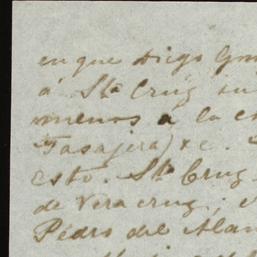 en que Diego
á Sta Cruz
menos a la
Tasajera) &c.
esto. Sta Cruz
de Vera cruz; e
Pedro del Alan